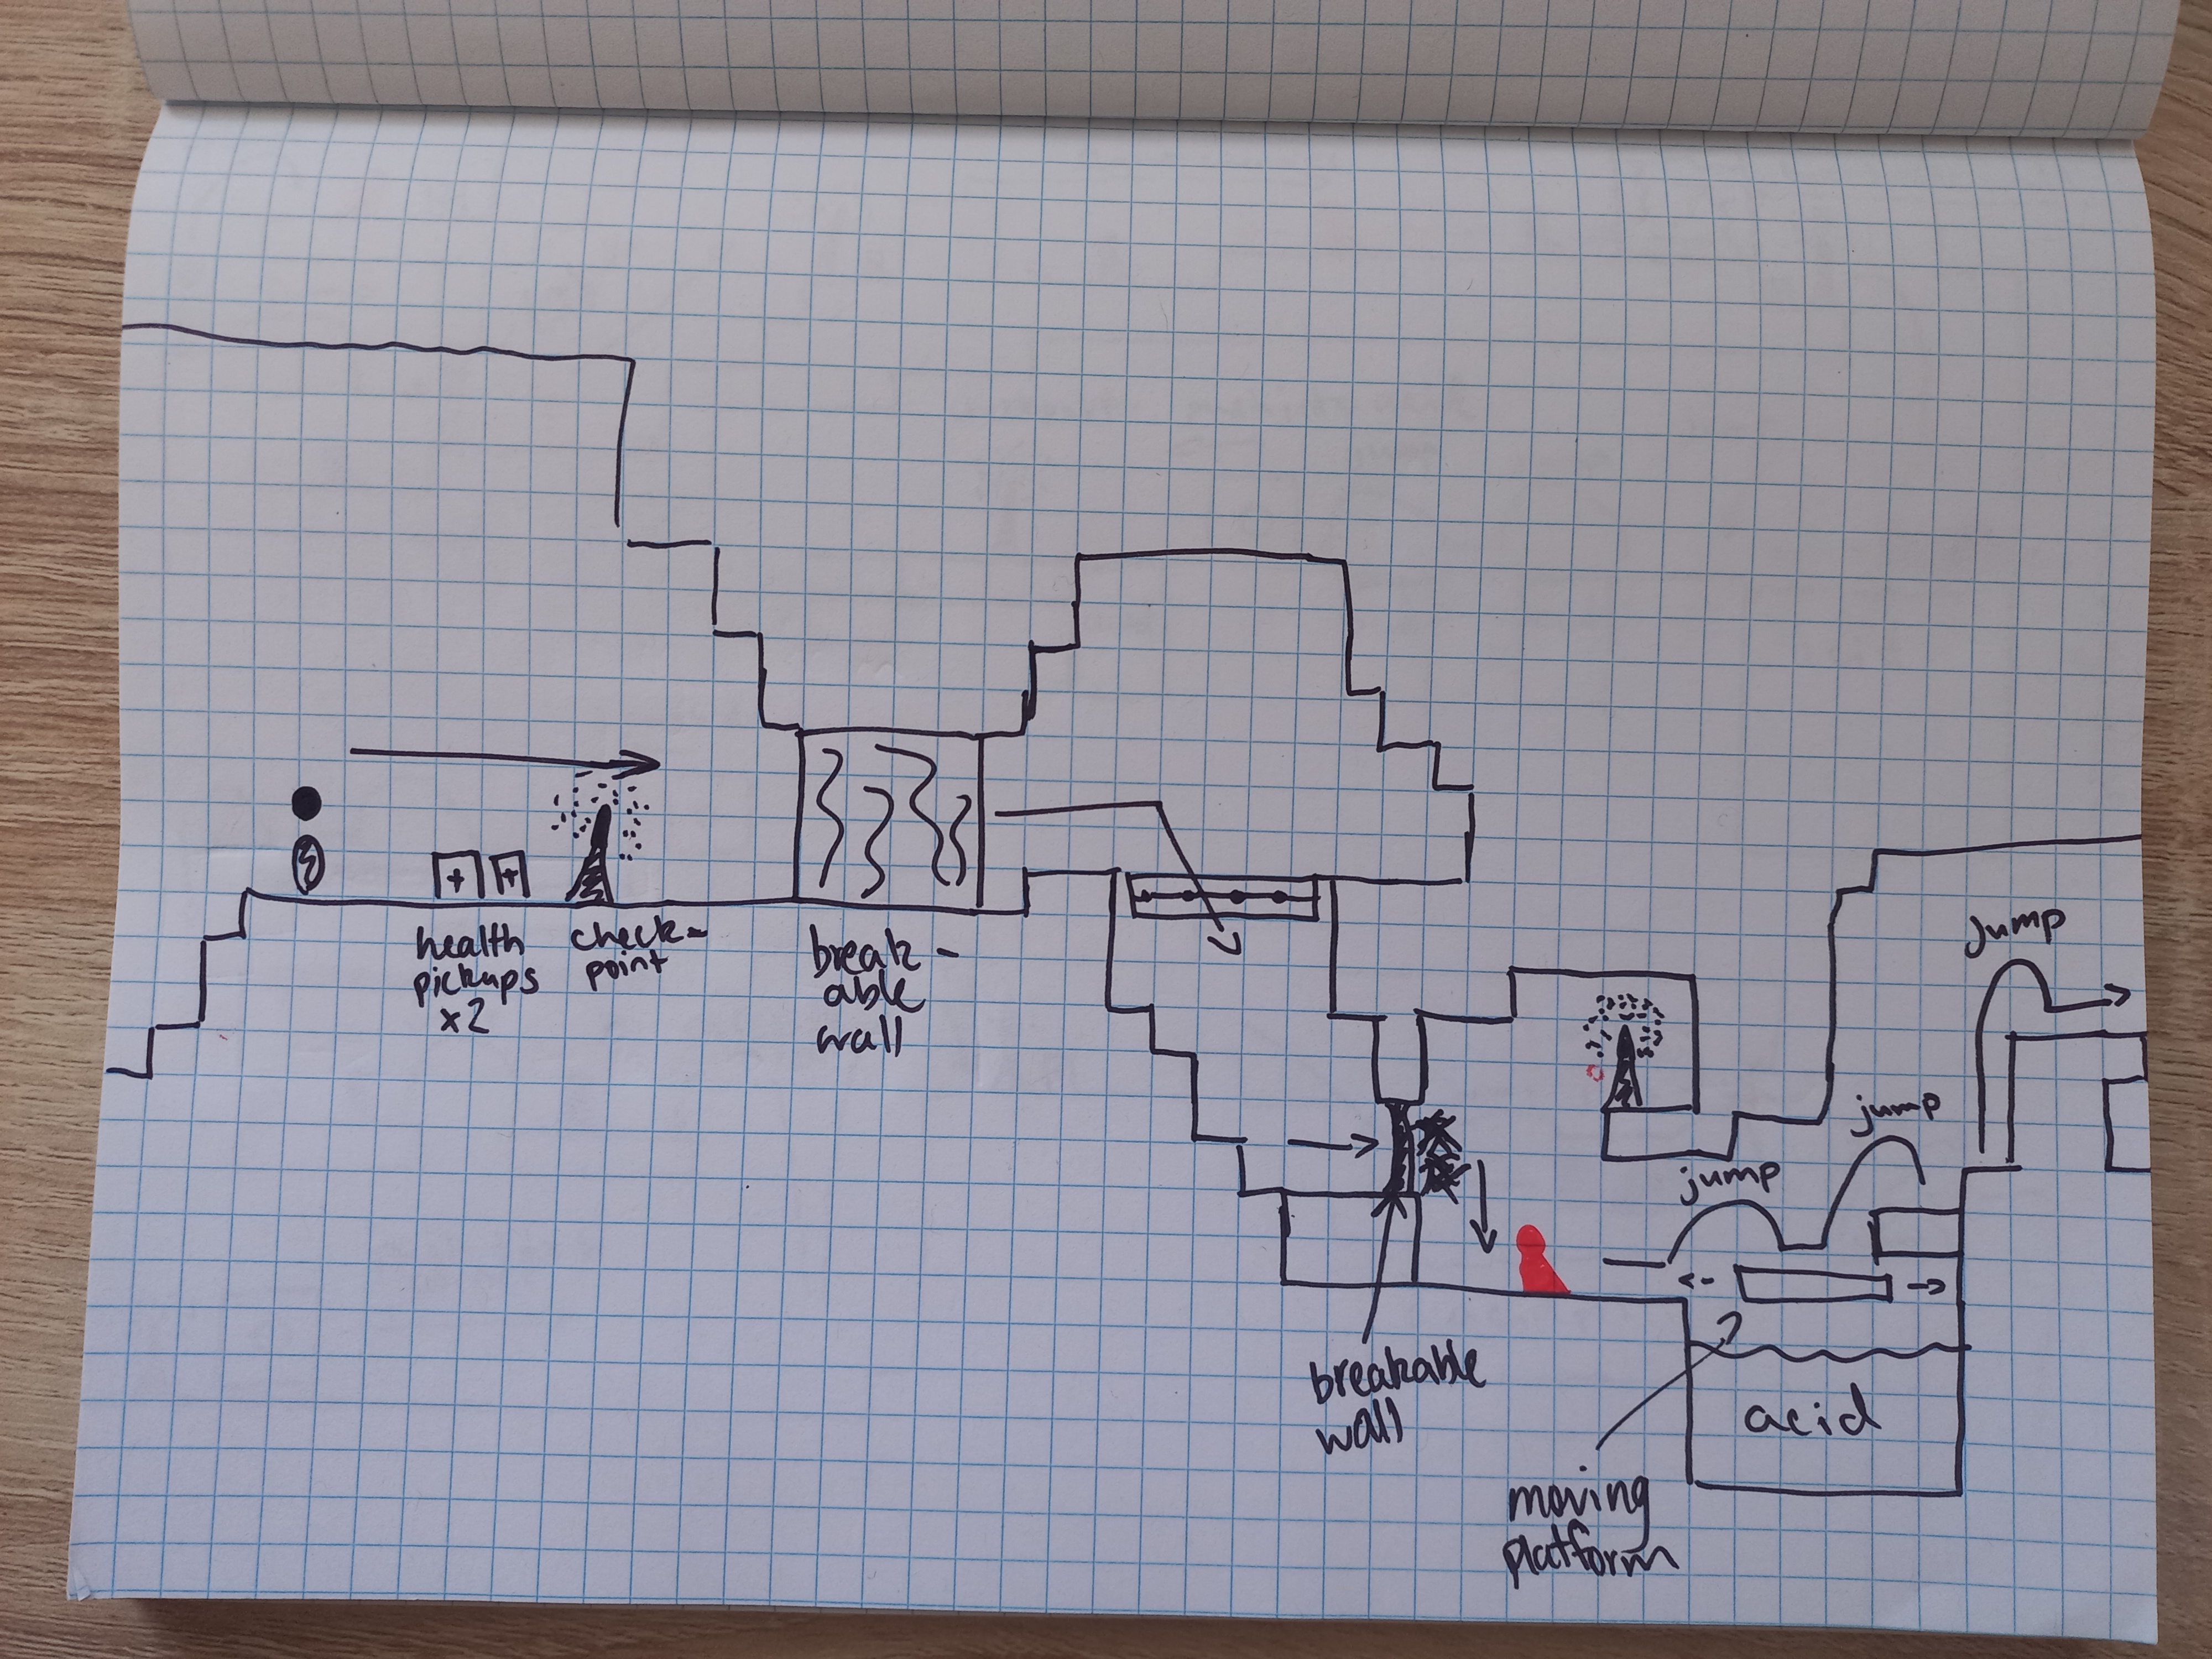 health
pickups
x2
check-
point
break-
able
wall
breakable
wall
moving
platform
acid
jump
jump
jump